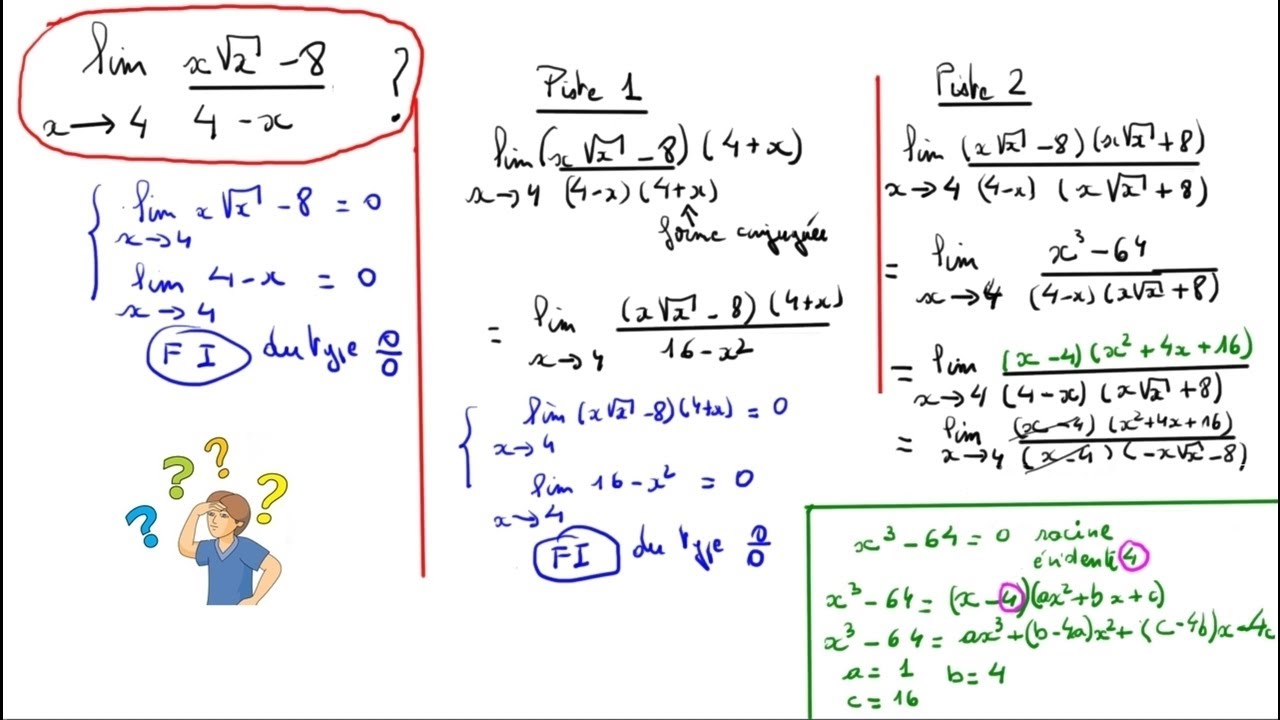 lim x√x - 8 / 4 - x ?
x → 4
{ lim x√x - 8 = 0
x → 4
lim 4 - x = 0
x → 4
FI du type 0/0
? ? ? ?
Piste 1
lim (x√x - 8)(4 + x) / (4-x)(4+x)
x → 4
forme conjuguée
= lim (x√x - 8)(4+x) / 16 - x²
x → 4
{ lim (x√x - 8)(4+x) = 0
x → 4
lim 16 - x² = 0
x → 4
FI du type 0/0
Piste 2
lim (x√x - 8)(x√x + 8) / (4-x)(x√x + 8)
x → 4
= lim x³ - 64 / (4-x)(x√x + 8)
x → 4
= lim (x - 4)(x² + 4x + 16) / (4-x)(x√x + 8)
x → 4
= lim (x - 4)(x²+4x+16) / (x-4)(-x√x - 8)
x → 4
x³ - 64 = 0 racine
évidente 4
x³ - 64 = (x - 4)(ax² + bx + c)
x³ - 64 = ax³ + (b-4a)x² + (c-4b)x - 4c
a = 1 b = 4
c = 16